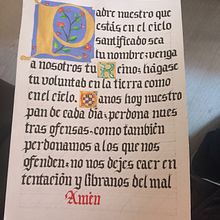 Padre nuestro que
estás en el cielo
santificado sea
tu nombre; venga
a nosotros tu Reino; hágase
tu voluntad en la tierra como
en el cielo. Danos hoy nuestro
pan de cada día; perdona nues
tras ofensas, como también
perdonamos a los que nos
ofenden; no nos dejes caer en
tentación y líbranos del mal
Amén